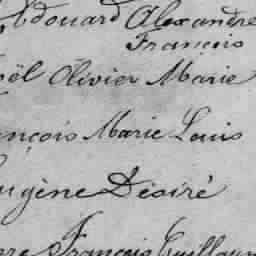 Edouard Alexandre
François
oël Olivier Marie
ançois Marie Louis
Eugène Désiré
erre François Guillaum